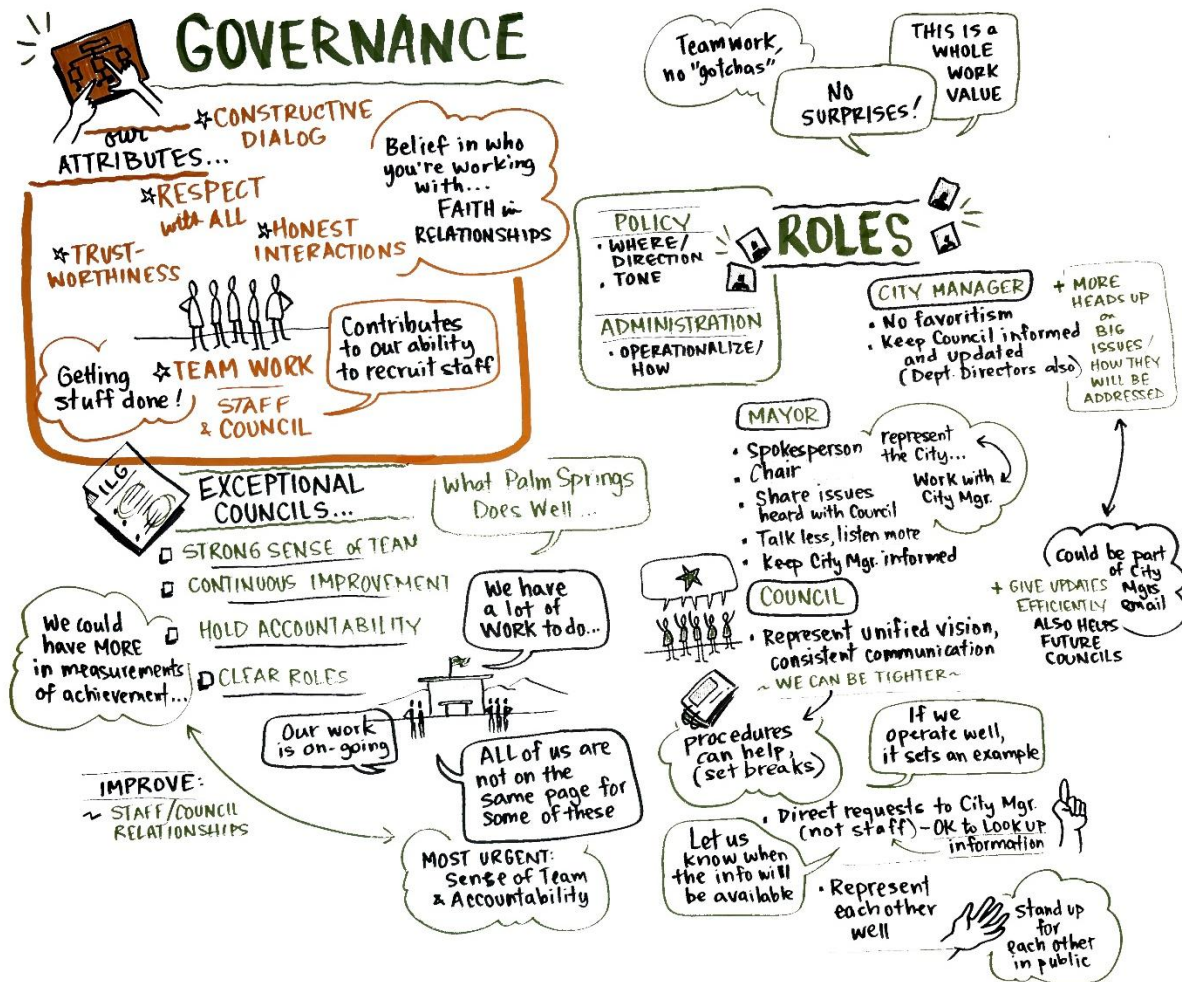 GOVERNANCE
our
ATTRIBUTES...
CONSTRUCTIVE
DIALOG
RESPECT
with ALL
HONEST
INTERACTIONS
TRUST-
WORTHINESS
Belief in who
you're working
with...
FAITH in
RELATIONSHIPS
Getting
stuff done!
TEAM WORK
STAFF
& COUNCIL
Contributes
to our ability
to recruit staff
ILG
EXCEPTIONAL
COUNCILS...
What Palm Springs
Does Well...
STRONG SENSE of TEAM
CONTINUOUS IMPROVEMENT
HOLD ACCOUNTABILITY
CLEAR ROLES
We could
have MORE
in measurements
of achievement...
We have
a lot of
WORK to do...
Our work
is on-going
ALL of us are
not on the
same page for
some of these
IMPROVE:
~ STAFF/COUNCIL
RELATIONSHIPS
MOST URGENT:
Sense of Team
& Accountability
Teamwork,
no "gotchas"
NO
SURPRISES!
THIS IS a
WHOLE
WORK
VALUE
ROLES
POLICY
• WHERE/
DIRECTION
• TONE
ADMINISTRATION
• OPERATIONALIZE/
HOW
CITY MANAGER
• No favoritism
• Keep Council informed
and updated
(Dept. Directors also)
+ MORE
HEADS UP
on
BIG
ISSUES/
HOW THEY
WILL BE
ADDRESSED
MAYOR
• Spokesperson
• Chair
• Share issues
heard with Council
• Talk less, listen more
• Keep City Mgr. informed
represent
the City...
Work with
City Mgr.
could be part
of City
Mgrs
email
+ GIVE UPDATES
EFFICIENTLY
ALSO HELPS
FUTURE
COUNCILS
COUNCIL
• Represent unified vision,
consistent communication
~ WE CAN BE TIGHTER ~
procedures
can help,
(set breaks)
If we
operate well,
it sets an example
• Direct requests to City Mgr.
(not staff) - OK to LOOK UP
information
Let us
know when
the info will
be available
• Represent
each other
well
stand up
for
each other
in public